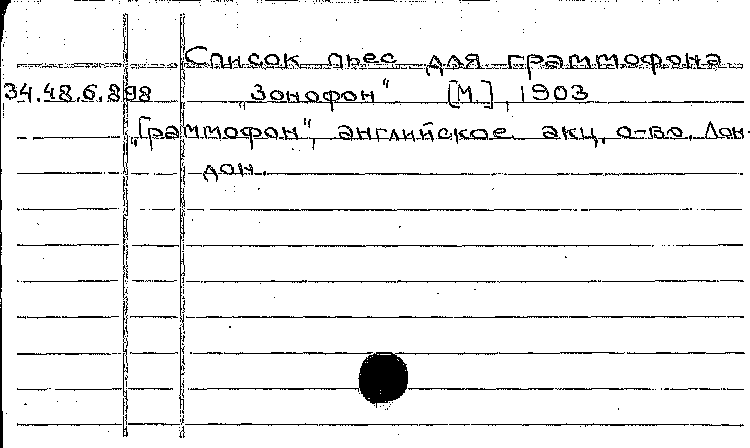 Список пьес для граммофона
34.48.6.898 „Зонофон“ [М.], 1903
„Граммофон“, английское акц. о-во. Лон-
дон.